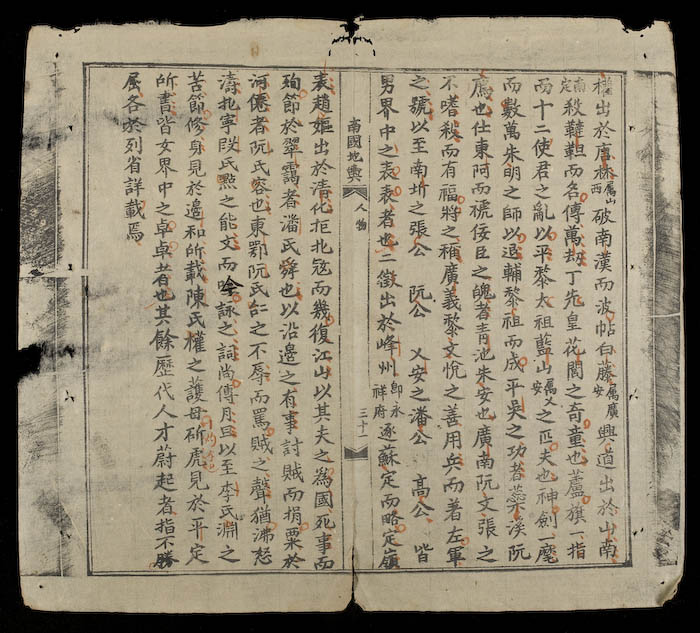 權出於唐林屬山西破南漢而波帖白藤屬廣安興道出於山南
南定殺韃靼而名傳萬刼丁先皇花閭之奇童也蘆旗一指
而十二使君之亂以平黎太祖藍山屬乂安之匹夫也神劍一麾
而數萬朱明之師以退輔黎祖而成平吳之功者蕊溪阮
廌也仕東阿而褫佞臣之魄者青池朱安也廣南阮文張之
不嗜殺而有福將之稱廣義黎文悅之善用兵而著左軍
之號以至南圻之張公 阮公 乂安之潘公 高公 皆
男界中之表表者也二徵出於峰州即永祥府逐蘇定而略定嶺
南國地輿 人物 三十一
表趙嫗出於清化拒北寇而幾復江山以其夫之為國死事而
殉節於翠靄者潘氏舜也以沿邊之有事討賊而捐粟於
河僊者阮氏容也東鄂阮氏之不辱而罵賊之聲猶沸怒
濤北寧段氏點之能文而吟詠之詞尚傳月旦以至李氏淵之
苦節修身見於邊和所載陳氏權之護母斫虎見於平定
所書皆女界中之卓卓者也其餘歷代人才蔚起者指不勝
屈各於列省詳載焉